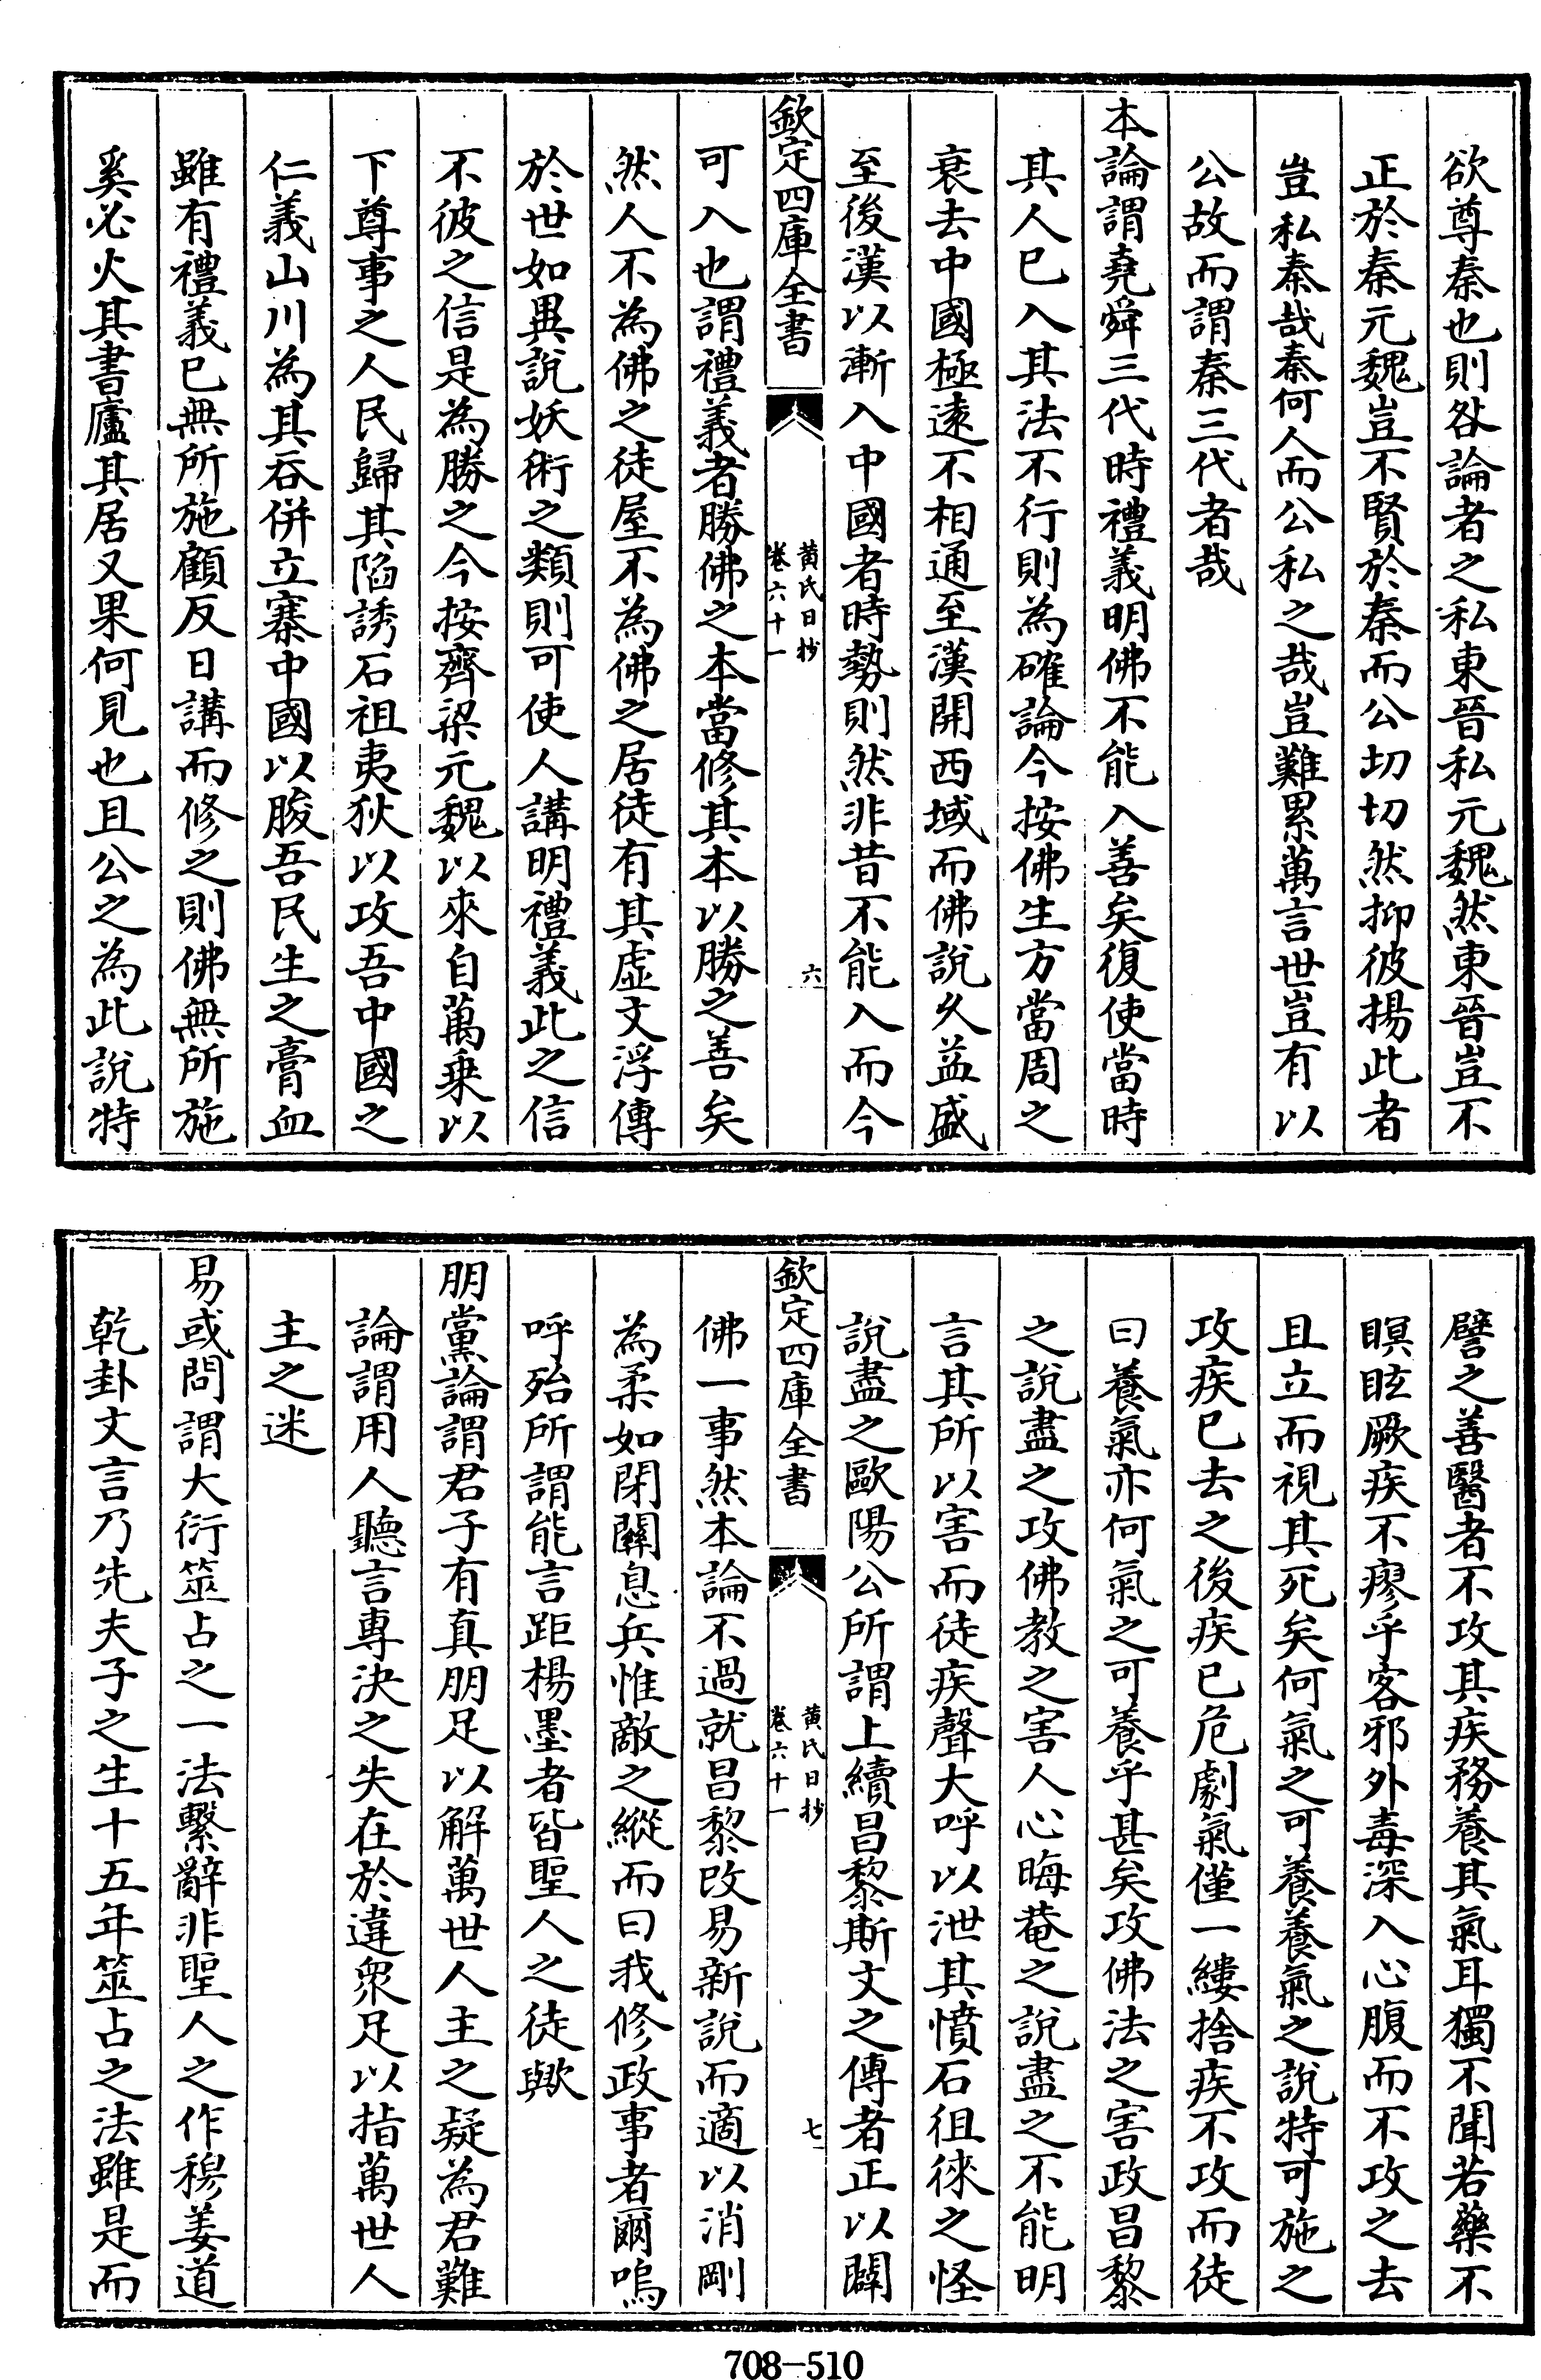 欲尊秦也則咎論者之私東晉私元魏然東晉豈不
正於秦元魏豈不賢於秦而公切切然抑彼揚此者
豈私秦哉秦何人而公私之哉豈難累萬言世豈有以
公故而謂秦三代者哉
本論謂堯舜三代時禮義明佛不能入善矣復使當時
其人已入其法不行則為確論今按佛生方當周之
衰去中國極逺不相通至漢開西域而佛說乆益盛
至後漢以漸入中國者時勢則然非昔不能入而今
欽定四庫全書
黃氏日抄
卷六十一
六
可入也謂禮義者勝佛之本當修其本以勝之善矣
然人不為佛之徒屋不為佛之居徒有其虛文浮傳
於世如異說妖術之類則可使人講明禮義此之信
不彼之信是為勝之今按齊梁元魏以來自萬乗以
下尊事之人民歸其陷誘石祖夷狄以攻吾中國之
仁義山川為其吞併立寨中國以朘吾民生之膏血
雖有禮義已無所施顧反日講而修之則佛無所施
奚必火其書廬其居又果何見也且公之為此說特
譬之善醫者不攻其疾務養其氣耳獨不聞若藥不
瞑眩厥疾不瘳乎客邪外毒深入心腹而不攻之去
且立而視其死矣何氣之可養養氣之說特可施之
攻疾已去之後疾已危劇氣僅一縷捨疾不攻而徒
曰養氣亦何氣之可養乎甚矣攻佛法之害政昌黎
之說盡之攻佛教之害人心晦菴之說盡之不能明
言其所以害而徒疾聲大呼以泄其憤石徂徠之怪
說盡之歐陽公所謂上續昌黎斯文之傳者正以闢
欽定四庫全書
黃氏日抄
卷六十一
七
佛一事然本論不過就昌黎改易新說而適以消剛
為柔如閉關息兵惟敵之縱而曰我修政事者爾嗚
呼殆所謂能言距楊墨者皆聖人之徒歟
朋黨論謂君子有真朋足以解萬世人主之疑為君難
論謂用人聽言專決之失在於違衆足以指萬世人
主之迷
易或問謂大衍筮占之一法繫辭非聖人之作穆姜道
乾卦文言乃先夫子之生十五年筮占之法雖是而
708-510